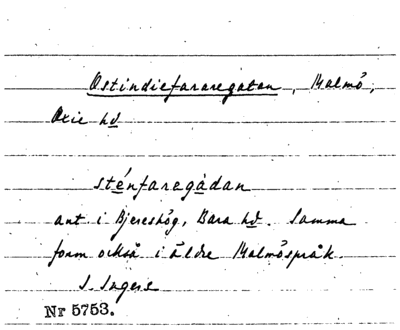 Ostindiefararegatan, Malmö,
Oxie hd
sténfaregàdan
ant i Bjereshög, Bara hd. Samma
form också i äldre Malmöspråk.
I. Ingers
Nr 5753.